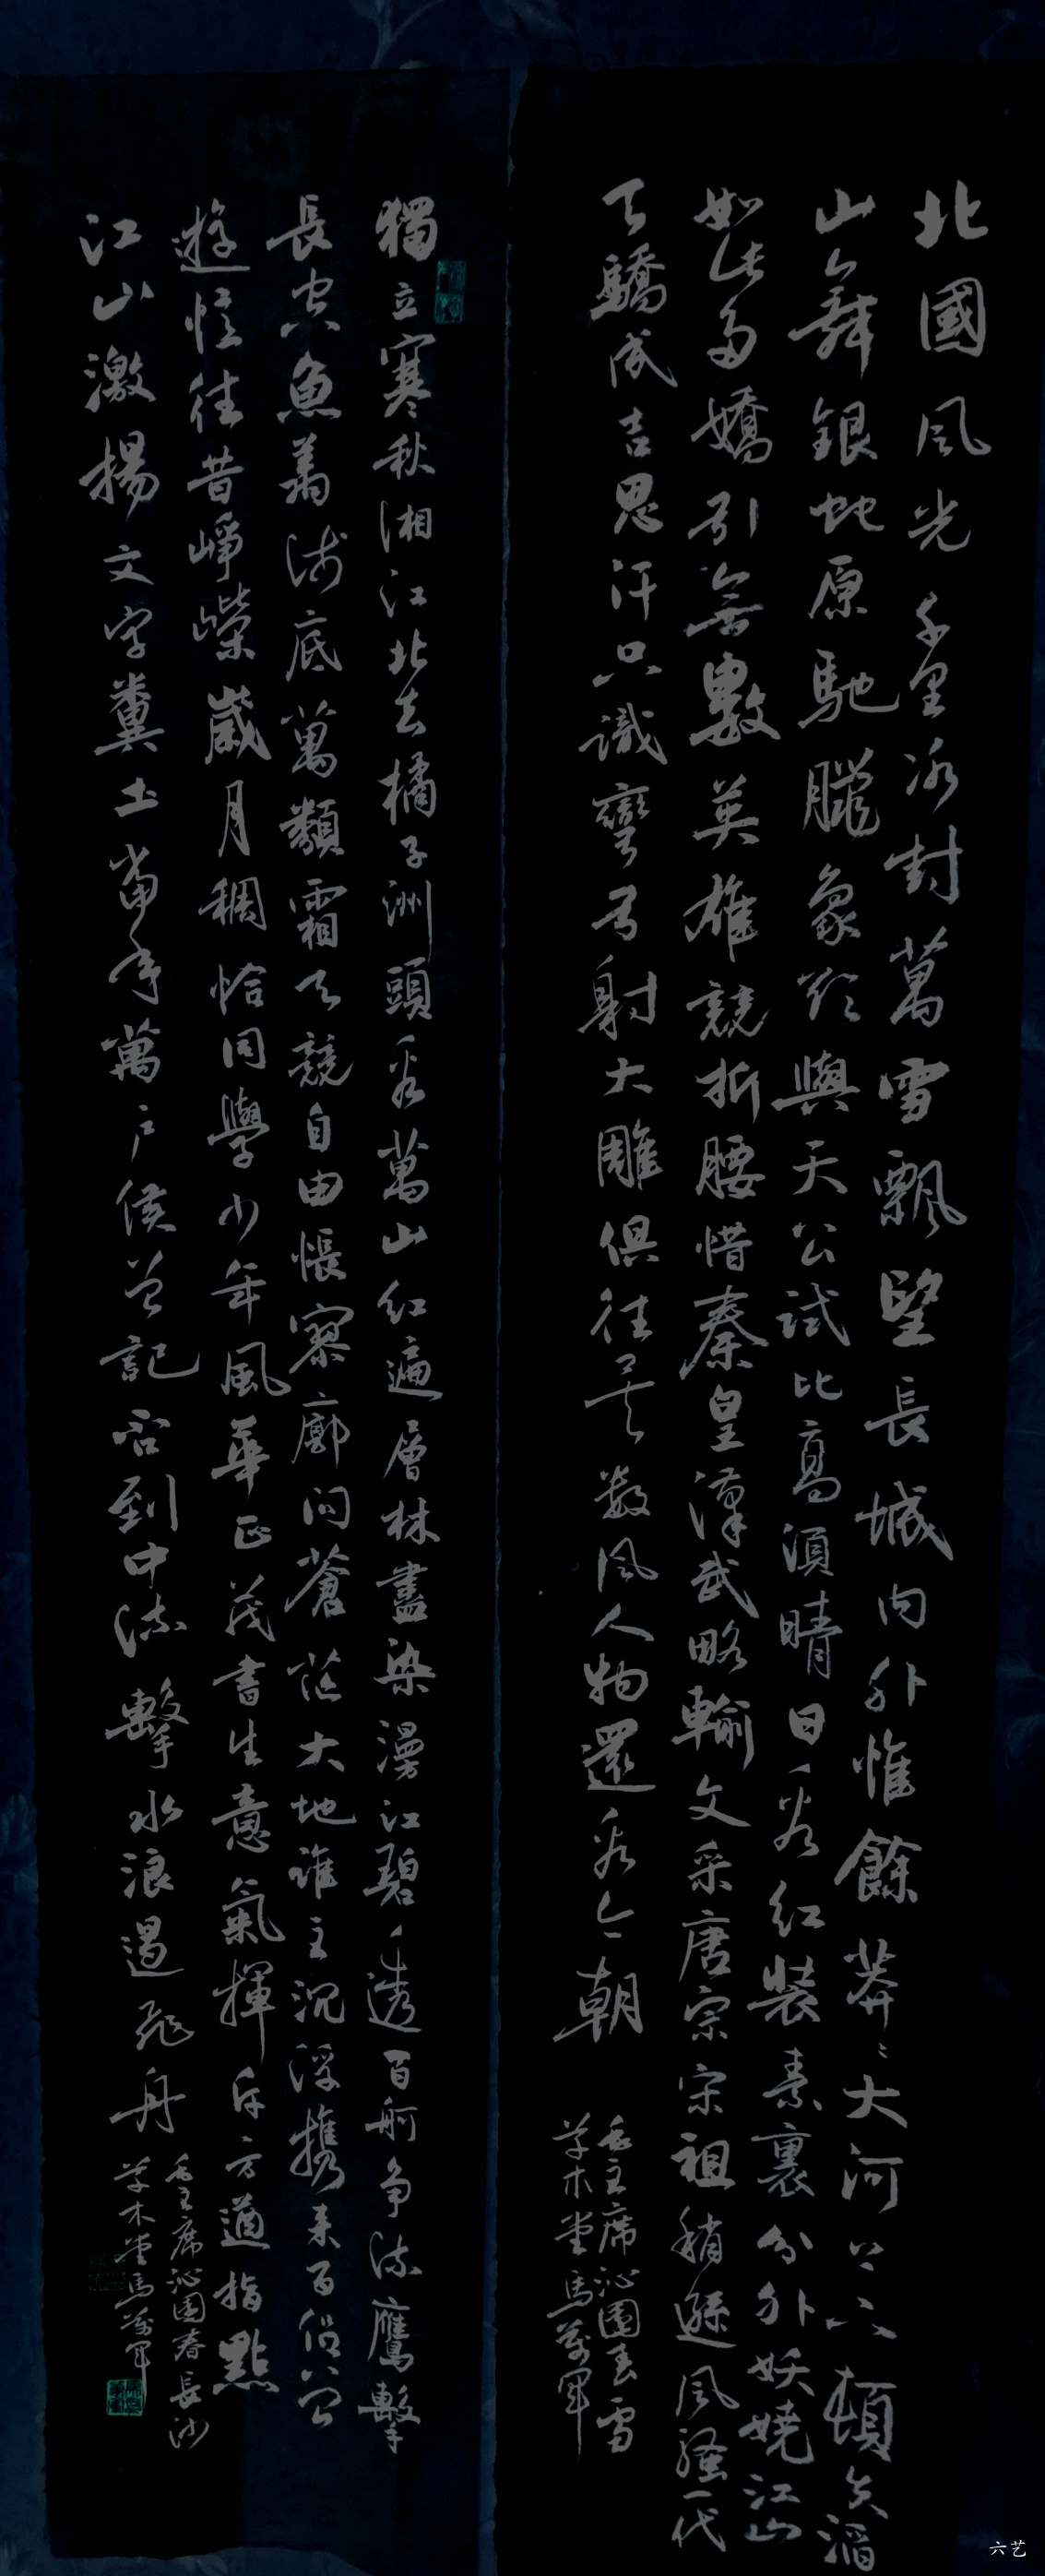 北國風光千里冰封萬雪飄望長城内外惟餘莽々大河上下頓失滔
山舞銀蛇原馳臘象欲與天公試比高須晴日看紅裝素裹分外妖嬈江山
如此多嬌引無數英雄競折腰惜秦皇漢武略輸文采唐宗宋祖稍遜風騷一代
天驕成吉思汗只識彎弓射大雕俱往矣数風人物還看今朝
毛主席沁園春雪
草木堂馬萬軍
獨立寒秋湘江北去橘子洲頭看萬山紅遍層林盡染漫江碧透百舸争流鷹擊
長空魚翔淺底萬類霜天競自由悵寥廓問蒼茫大地誰主沉浮携来百侣曾
遊憶往昔崢嶸歲月稠恰同學少年風華正茂書生意氣揮斥方遒指點
江山激揚文字糞土當年萬户侯曾記否到中流擊水浪遏飛舟
毛主席沁園春長沙
草木堂馬萬軍
六艺